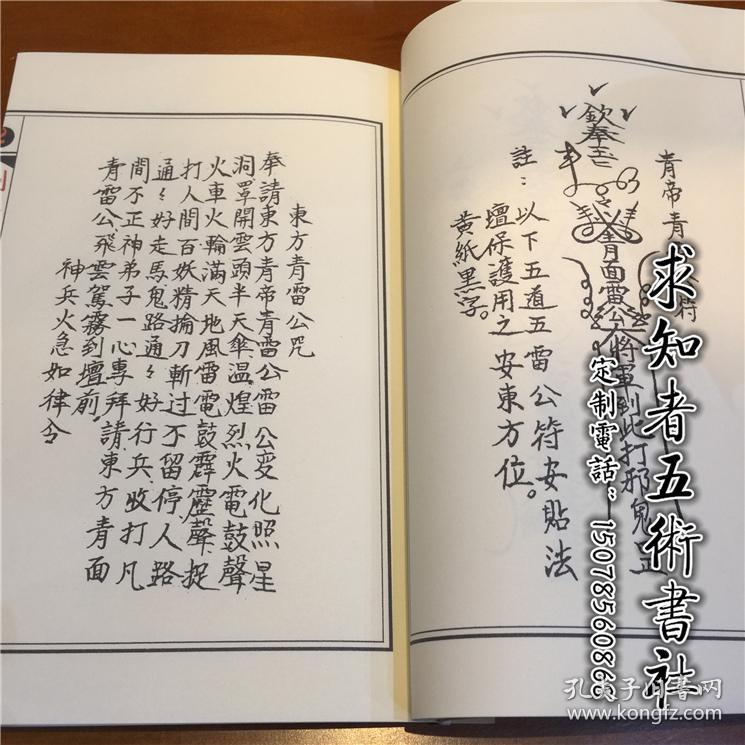 青帝青
符
欽奉玉
青面雷公將軍到此打邪鬼
註：以下五道五雷公符安貼法
壇保護用之安東方位。
黃紙黑字。
東方青雷公咒
奉請東方青帝青雷公雷公变化照星
洞罩開雲頭半天傘温煌烈火電鼓聲
火車火輪滿天地風雷電鼓霹靂聲捉
打人間百妖精掄刀斬过不留停人路
通々好走馬鬼路通々好行兵收打凡
間不正神弟子一心專拜請東方青面
青雷公飛雲駕霧到壇前
神兵火急如律令
求知者五術書社
定制電話：15078560868
孔夫子旧书网
www.kongfz.com